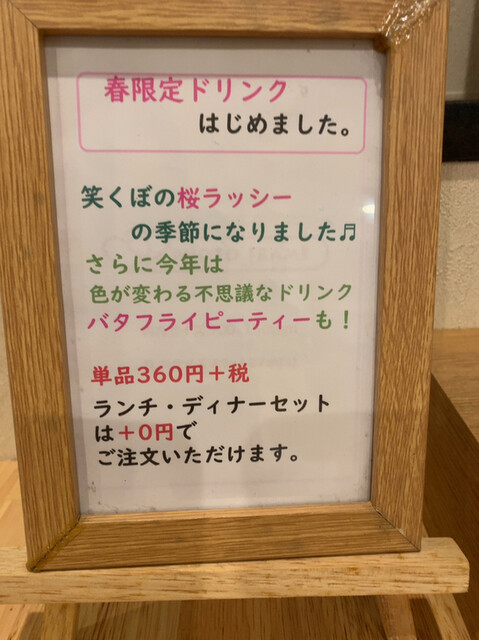 春限定ドリンク
はじめました。
笑くぼの桜ラッシー
の季節になりました♬
さらに今年は
色が変わる不思議なドリンク
バタフライピーティーも！
単品360円＋税
ランチ・ディナーセット
は＋0円で
ご注文いただけます。